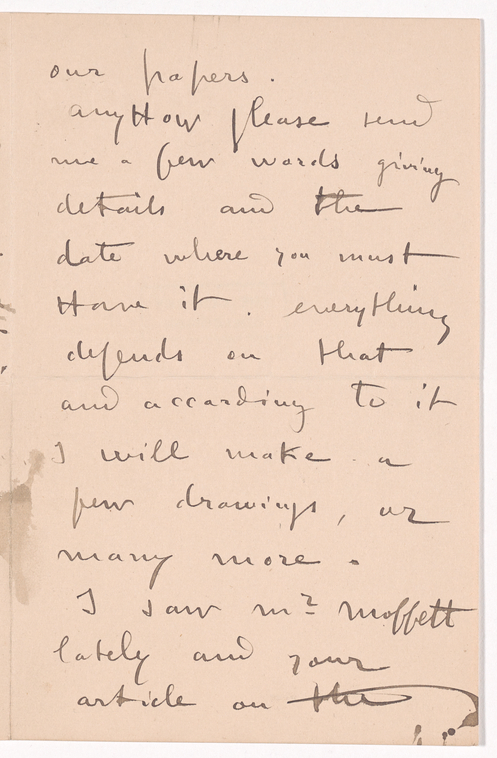 our papers.
anyHow please send
me a few words giving
details and the
date where you must
Have it. everything
depends on that
and according to it
I will make a
few drawings, or
many more.
I saw mr. Moffett
lately and your
article on the